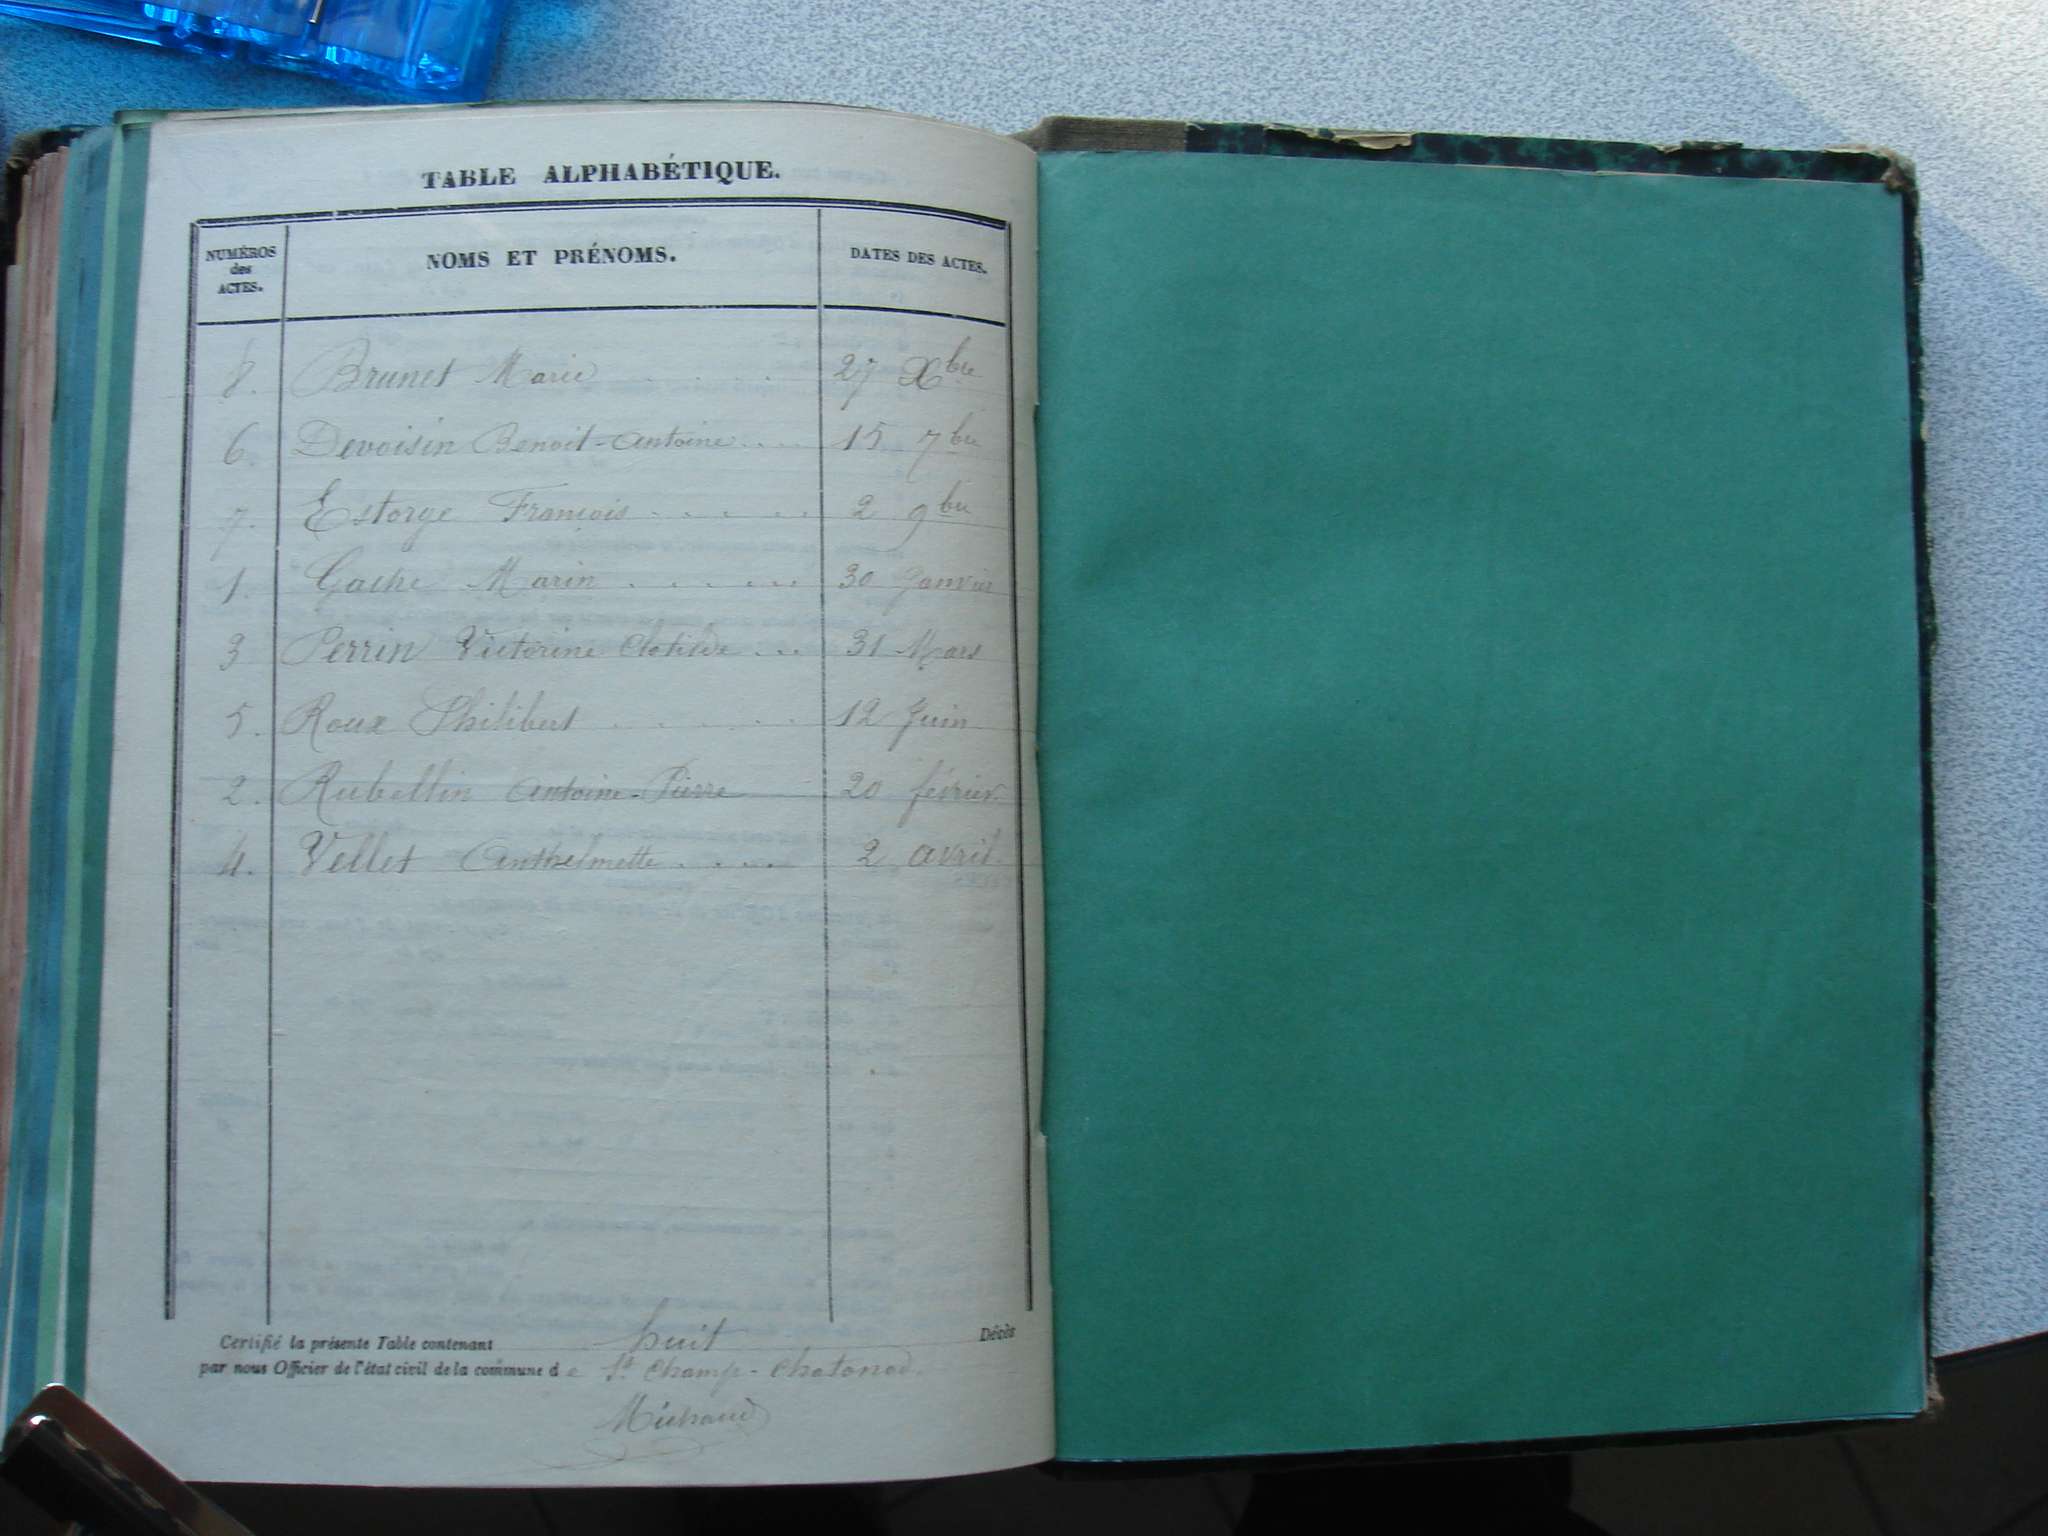 TABLE ALPHABÉTIQUE.
NUMÉROS des ACTES. NOMS ET PRÉNOMS. DATES DES ACTES.
8. Brunet Marie . . . . 27 Xbre
6. Devoisin Benoit-Antoine . . . . 15 7bre
7. Estorge François . . . . . 2 9bre
1. Gache Marin . . . . . . 30 Janvier
3 Perrin Victorine Clotilde . . . 31 Mars
5. Roux Philibert . . . . . 12 Juin
2. Rubellin Antoine-Pierre 20 février.
4. Vellet Anthelmette . . . . 2 avril.
Certifié la présente Table contenant huit Décès
par nous Officier de l'état civil de la commune de St Champ-Chatonod.
Michaud